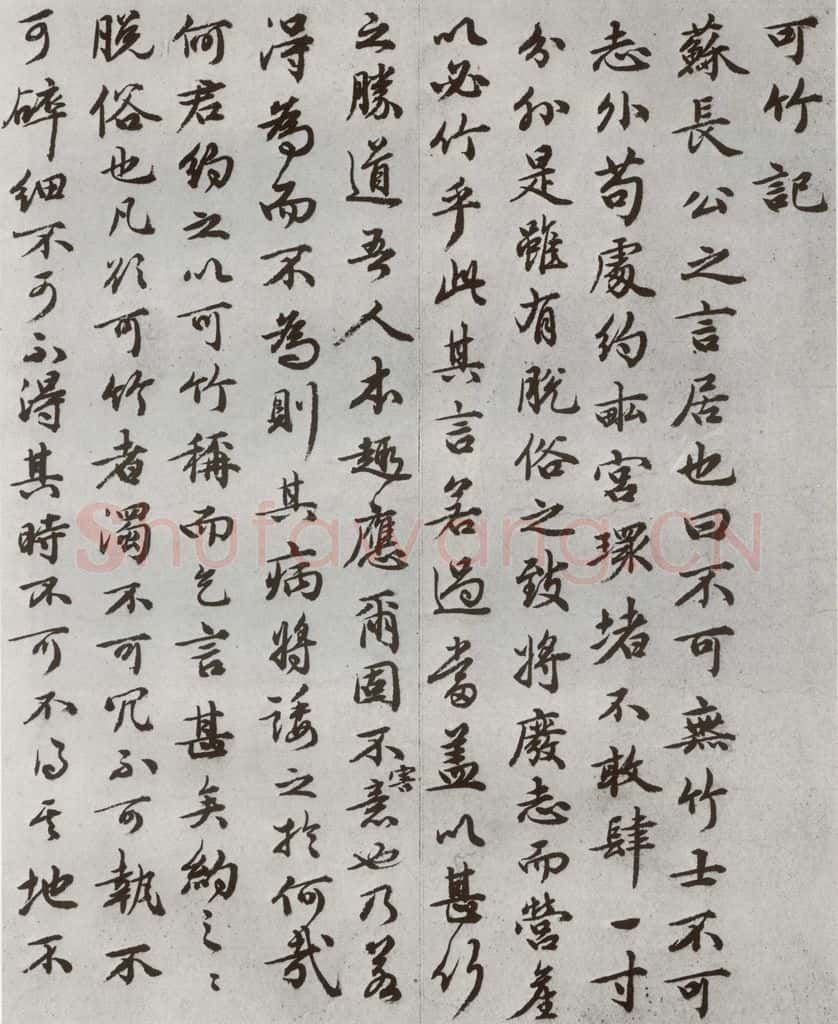 可竹記
蘇長公之言居也曰不可無竹士不可
志外苟處約畝宮環堵不敢肆一寸
分外是雖有脫俗之致將廢志而營産
以必竹乎此其言若過當盖以甚竹
之勝道吾人本趣應爾固不害意也乃若
得為而不為則其病將諉之於何哉
何君約之以可竹稱而乞言甚矣約之之
脫俗也凡欲可竹者濁不可冗不可執不
可碎細不可不得其時不可不得其地不
Shufawang.CN